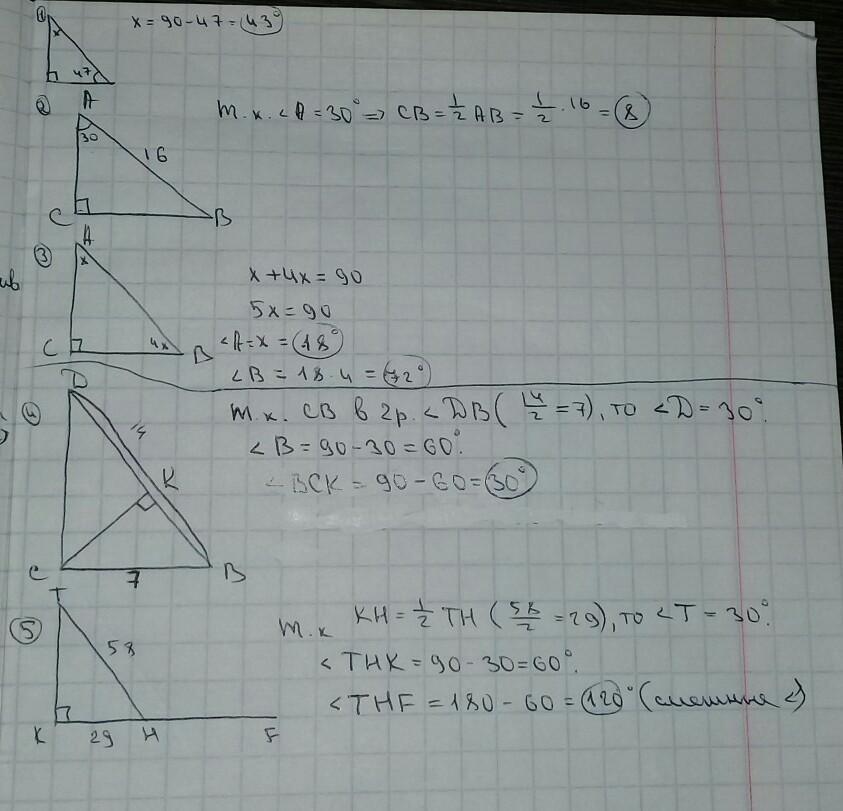 ① x = 90-47 = 43°
x
47
② т.к. <A = 30° => CB = 1/2 AB = 1/2 · 16 = 8
A
30
16
C
B
③
A
x
4x
C
B
x + 4x = 90
5x = 90
<A = x = 18°
<B = 18 · 4 = 72°
④
D
14
K
C
7
B
т.к. CB в 2р. < DB (14/2 = 7), то <D = 30°.
<B = 90-30 = 60°.
<BCK = 90-60 = 30°
⑤
T
58
K
29
H
F
т.к KH = 1/2 TH (58/2 = 29), то <T = 30°.
<THK = 90-30 = 60°.
<THF = 180-60 = 120° (смежный <)